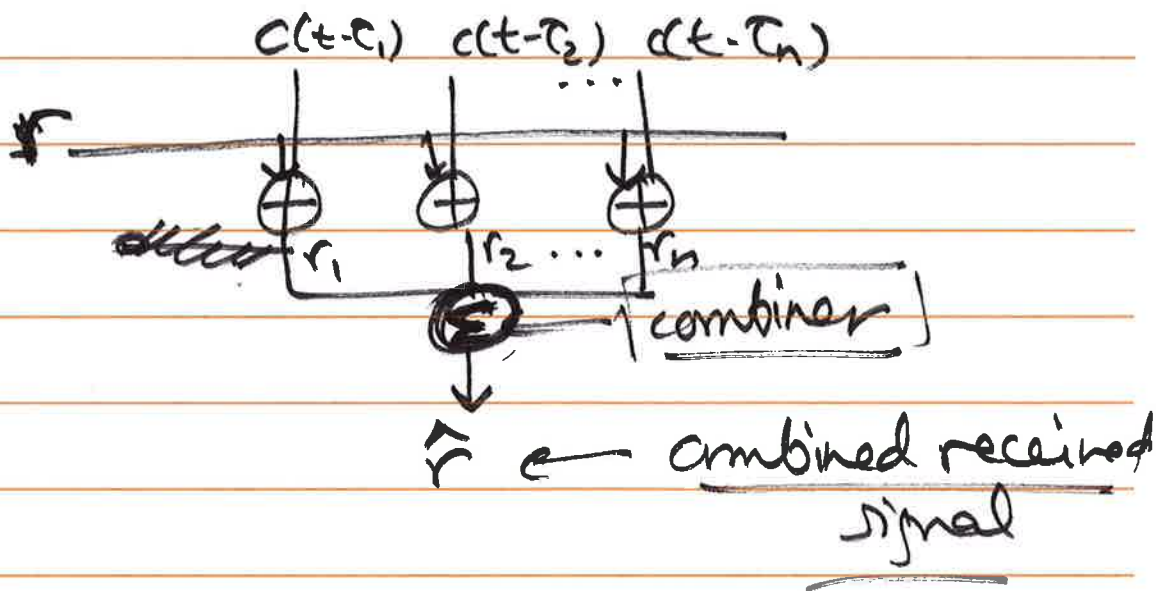 c(t-τ₁) c(t-τ₂) c(t-τₙ)
...
r
r₁ r₂ ... rₙ
Σ [combiner]
r̂ ← combined received
signal